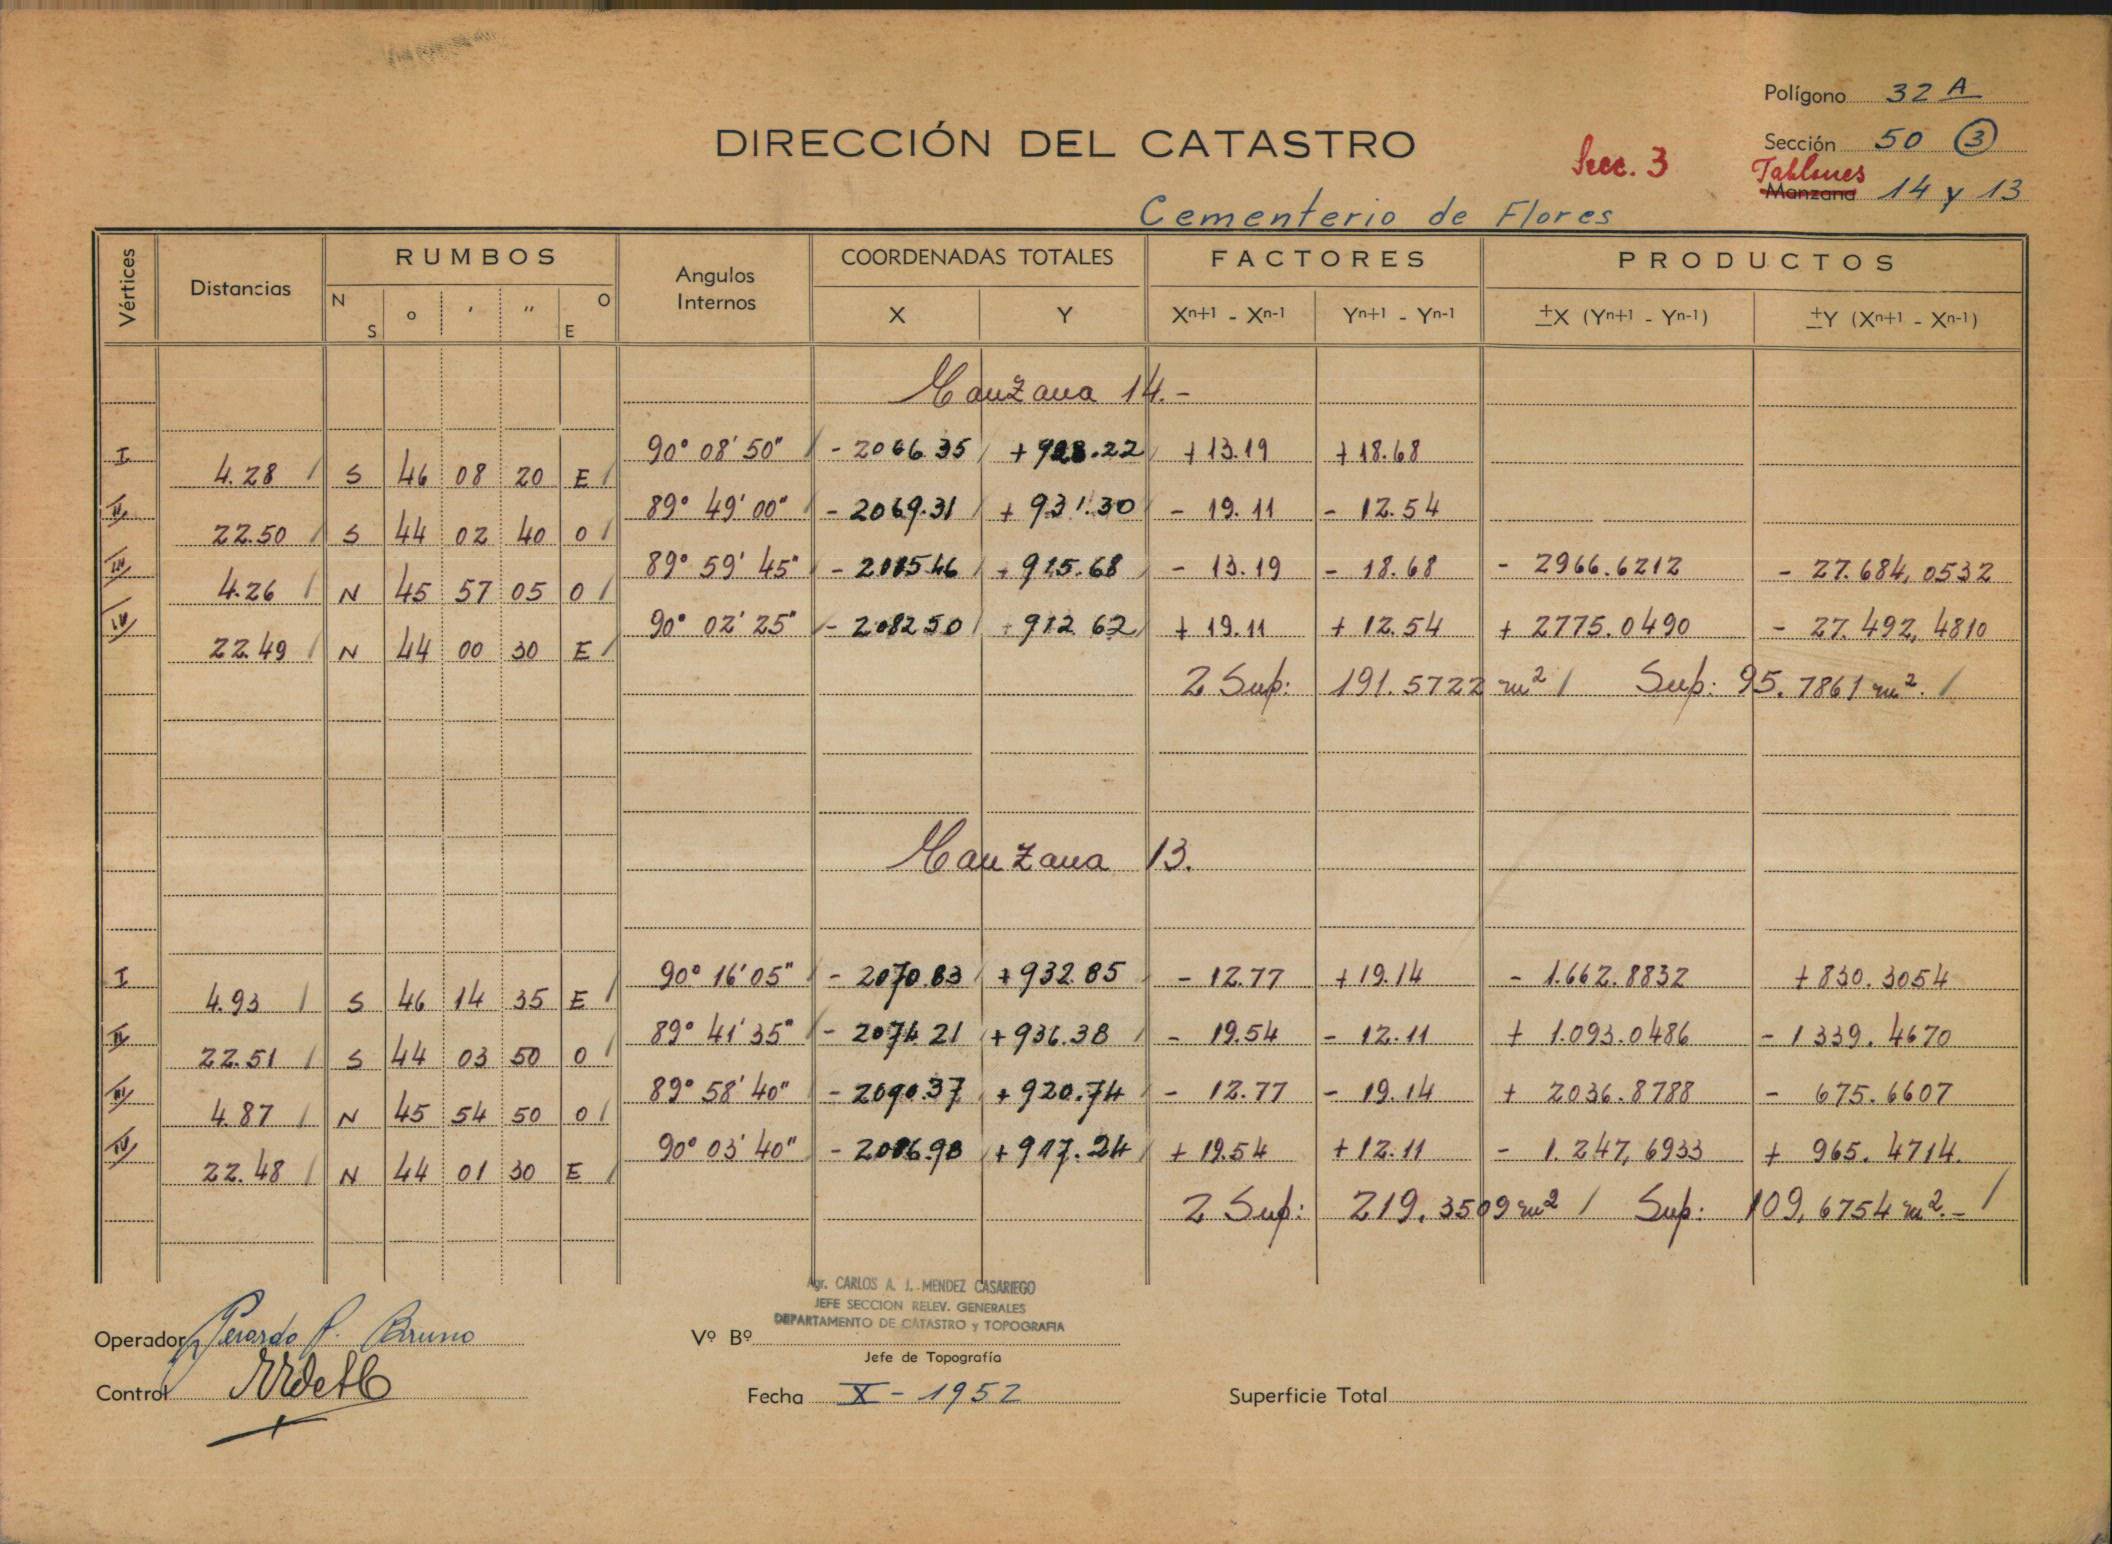 Polígono 32 A
DIRECCIÓN DEL CATASTRO
Secc. 3
Sección 50 (3)
Tablones
Manzana 14 y 13
Cementerio de Flores
Vértices Distancias RUMBOS Angulos Internos COORDENADAS TOTALES FACTORES PRODUCTOS
N S ° ' " O E X Y Xn+1 - Xn-1 Yn+1 - Yn-1 ±X (Yn+1 - Yn-1) ±Y (Xn+1 - Xn-1)
Manzana 14.-
I 90° 08' 50" - 2066.35 + 928.22 + 13.19 + 18.68
4.28 S 46 08 20 E
II 89° 49' 00" - 2069.31 + 931.30 - 19.11 - 12.54
22.50 S 44 02 40 O
III 89° 59' 45" - 2085.46 + 915.68 - 13.19 - 18.68 - 2966.6212 - 27.684,0532
4.26 N 45 57 05 O
IV 90° 02' 25" - 2082.50 + 912.62 + 19.11 + 12.54 + 2775.0490 - 27.492,4810
22.49 N 44 00 30 E
2 Sup: 191.5722 m² Sup: 95.7861 m².
Manzana 13.
I 90° 16' 05" - 2070.83 + 932.85 - 12.77 + 19.14 - 1.662.8832 + 830.3054
4.93 S 46 14 35 E
II 89° 41' 35" - 2074.21 + 936.38 - 19.54 - 12.11 + 1.093.0486 - 1339.4670
22.51 S 44 03 50 O
III 89° 58' 40" - 2090.37 + 920.74 - 12.77 - 19.14 + 2036.8788 - 675.6607
4.87 N 45 54 50 O
IV 90° 03' 40" - 2086.98 + 917.24 + 19.54 + 12.11 - 1.247,6933 + 965.4714.
22.48 N 44 01 30 E
2 Sup: 219.3509 m² Sup: 109,6754 m².-
Agr. CARLOS A. J. MENDEZ CASARIEGO
JEFE SECCION RELEV. GENERALES
DEPARTAMENTO DE CATASTRO y TOPOGRAFIA
Operador Gerardo P. Bruno
Vº Bº
Jefe de Topografía
Control
Fecha X - 1952
Superficie Total